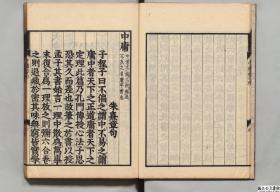 中庸
朱熹章句
子程子曰不偏之謂中不易之謂
庸中者天下之正道庸者天下之
定理此篇乃孔門傳授心法子思
恐其久而差也故筆之於書以授
孟子其書始言一理中散為萬事
末復合為一理放之則彌六合卷
之則退藏於密其味無窮皆實學